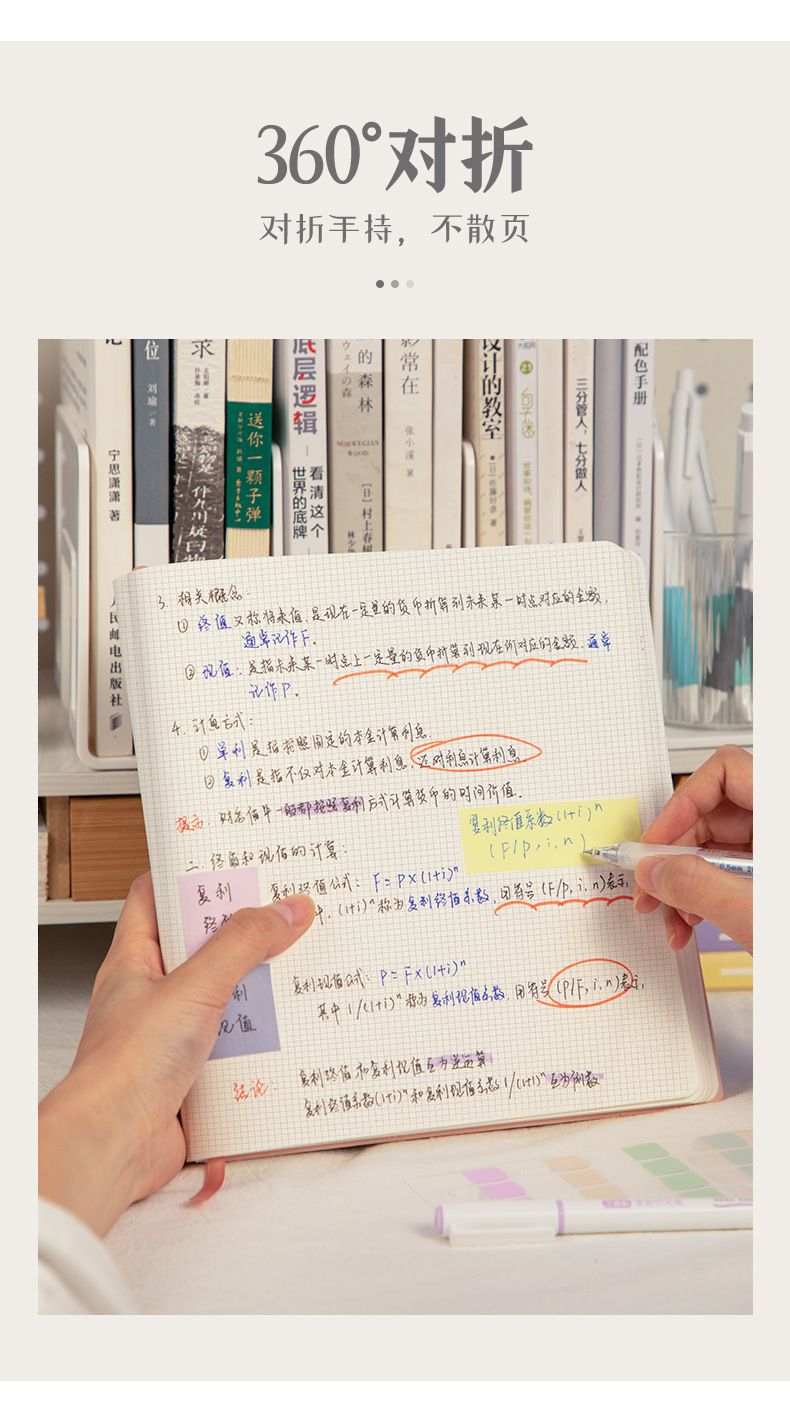 360°对折
对折手持，不散页
位
刘瑜/著
录
宁思潇潇 著
人民邮电出版社
送你一颗子弹
底层逻辑
看清这个
世界的底牌
ウェイの森
的森林
NORWEGIAN
WOOD
[日]村上春树
林少
影常在
张小溪 著
设计的教室
[日]佐藤好彦 著
21
三分管人，七分做人
配色手册
3. 相关概念
① 终值又称将来值，是现在一定量的货币折算到未来某一时点对应的金额，
通常记作F。
② 现值：是指未来某一时点上一定量的货币折算到现在所对应的金额，通常
记作P。
4. 计息方式：
① 单利是指按照固定的本金计算利息。
② 复利是指不仅对本金计算利息，还对利息计算利息。
提示：财务估值中一般都按照复利方式计算货币的时间价值。
复利终值系数(1+i)ⁿ
(F/P，i，n)
二. 终值和现值的计算：
复利
终
复利终值公式：F=P×(1+i)ⁿ
中，(1+i)ⁿ称为复利终值系数，用符号(F/P，i，n)表示。
利
现值
复利现值公式：P=F×(1+i)ⁿ
其中1/(1+i)ⁿ称为复利现值系数，用符号(P/F，i，n)表示。
结论：
复利终值和复利现值互为逆运算
复利终值系数(1+i)ⁿ和复利现值系数1/(1+i)ⁿ互为倒数
0.5mm